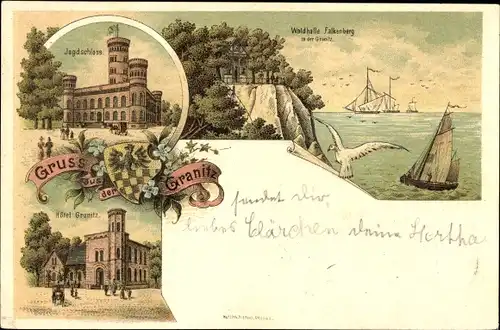 Jagdschloss.
Waldhalle Falkenberg
in der Granitz.
Gruss
aus
der
Granitz
Hôtel Granitz.
sendet dir,
liebes Clärchen deine Hertha